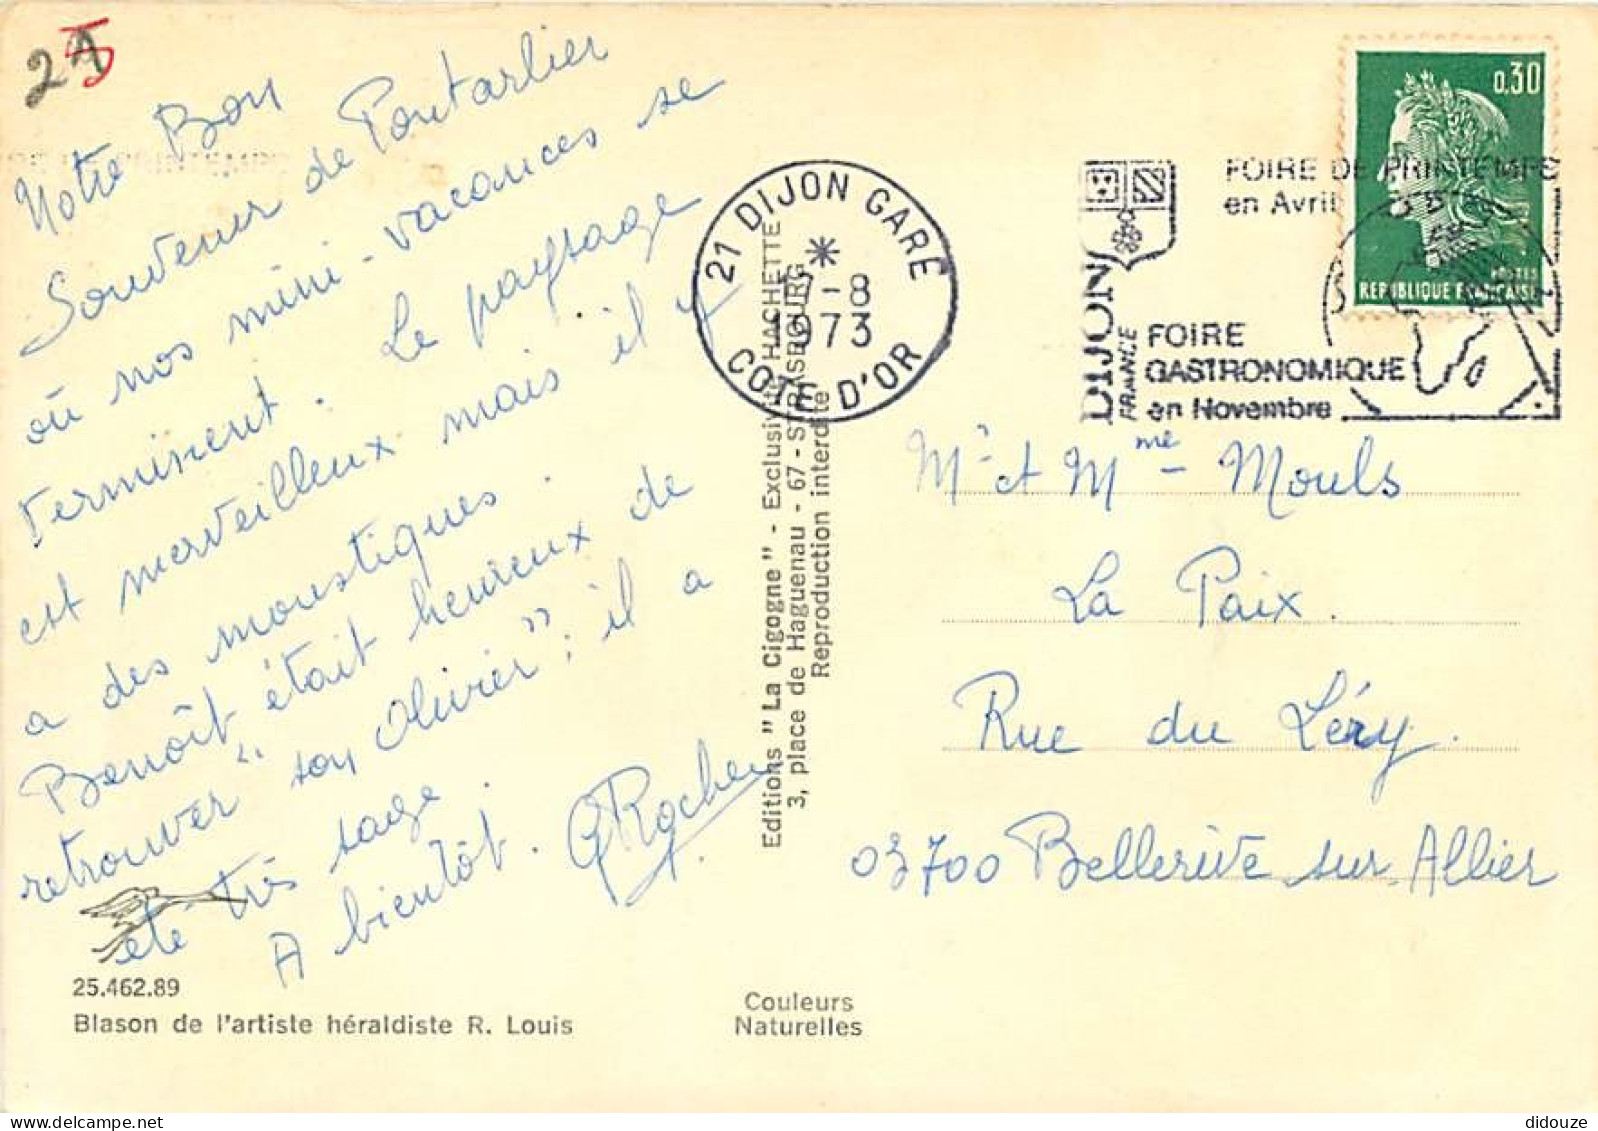 25
Notre Bon
Souvenir de Pontarlier
où nos mini-vacances se
terminent. Le paysage
est merveilleux mais il y
a des moustiques.
Benoît était heureux de
retrouver "son Olivier"; il a
été très sage.
A bientôt. GRocher
25.462.89
Blason de l'artiste héraldiste R. Louis
Couleurs
Naturelles
Editions "La Cigogne" - Exclusivité HACHETTE
3, place de Haguenau - 67 - STRASBOURG
Reproduction interdite
21 DIJON GARE
-8
1973
COTE D'OR
DIJON
FRANCE
FOIRE DE PRINTEMPS
en Avril
FOIRE
GASTRONOMIQUE
en Novembre
0,30
POSTES
REPUBLIQUE FRANÇAISE
Mr et Mme Mouls
La Paix.
Rue du Léry.
03700 Bellerive sur Allier
didouze @ delcampe.net